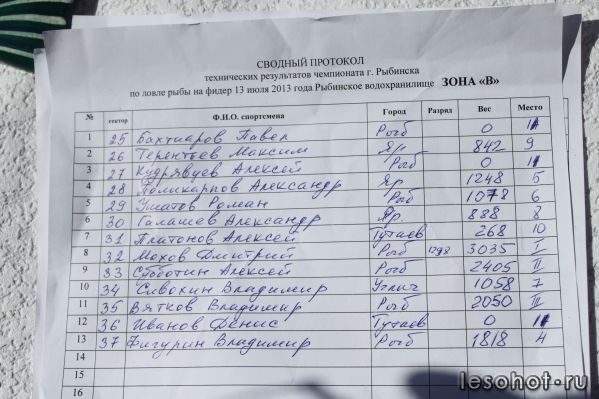 СВОДНЫЙ ПРОТОКОЛ
технических результатов чемпионата г. Рыбинска
по ловле рыбы на фидер 13 июля 2013 года Рыбинское водохранилище ЗОНА «В»
№ сектор Ф.И.О. спортсмена Город Разряд Вес Место
1 25 Бахтиаров Павел Рыб 0 11
2 26 Терентьев Максим Яр 842 9
3 27 Кудрявцев Алексей Рыб 0 11
4 28 Поликарпов Александр Яр 1248 5
5 29 Ушатов Роман Рыб 1078 6
6 30 Галашев Александр Яр 888 8
7 31 Платонов Алексей Тутаев 268 10
8 32 Мохов Дмитрий Рыб 3035 I
9 33 Субботин Алексей Рыб 2405 II
10 34 Сивохин Владимир Углич 1058 7
11 35 Вятков Владимир Рыб 2050 III
12 36 Иванов Денис Тутаев 0 11
13 37 Фигурин Владимир Рыб 1818 4
14
15
16
lesohot-ru